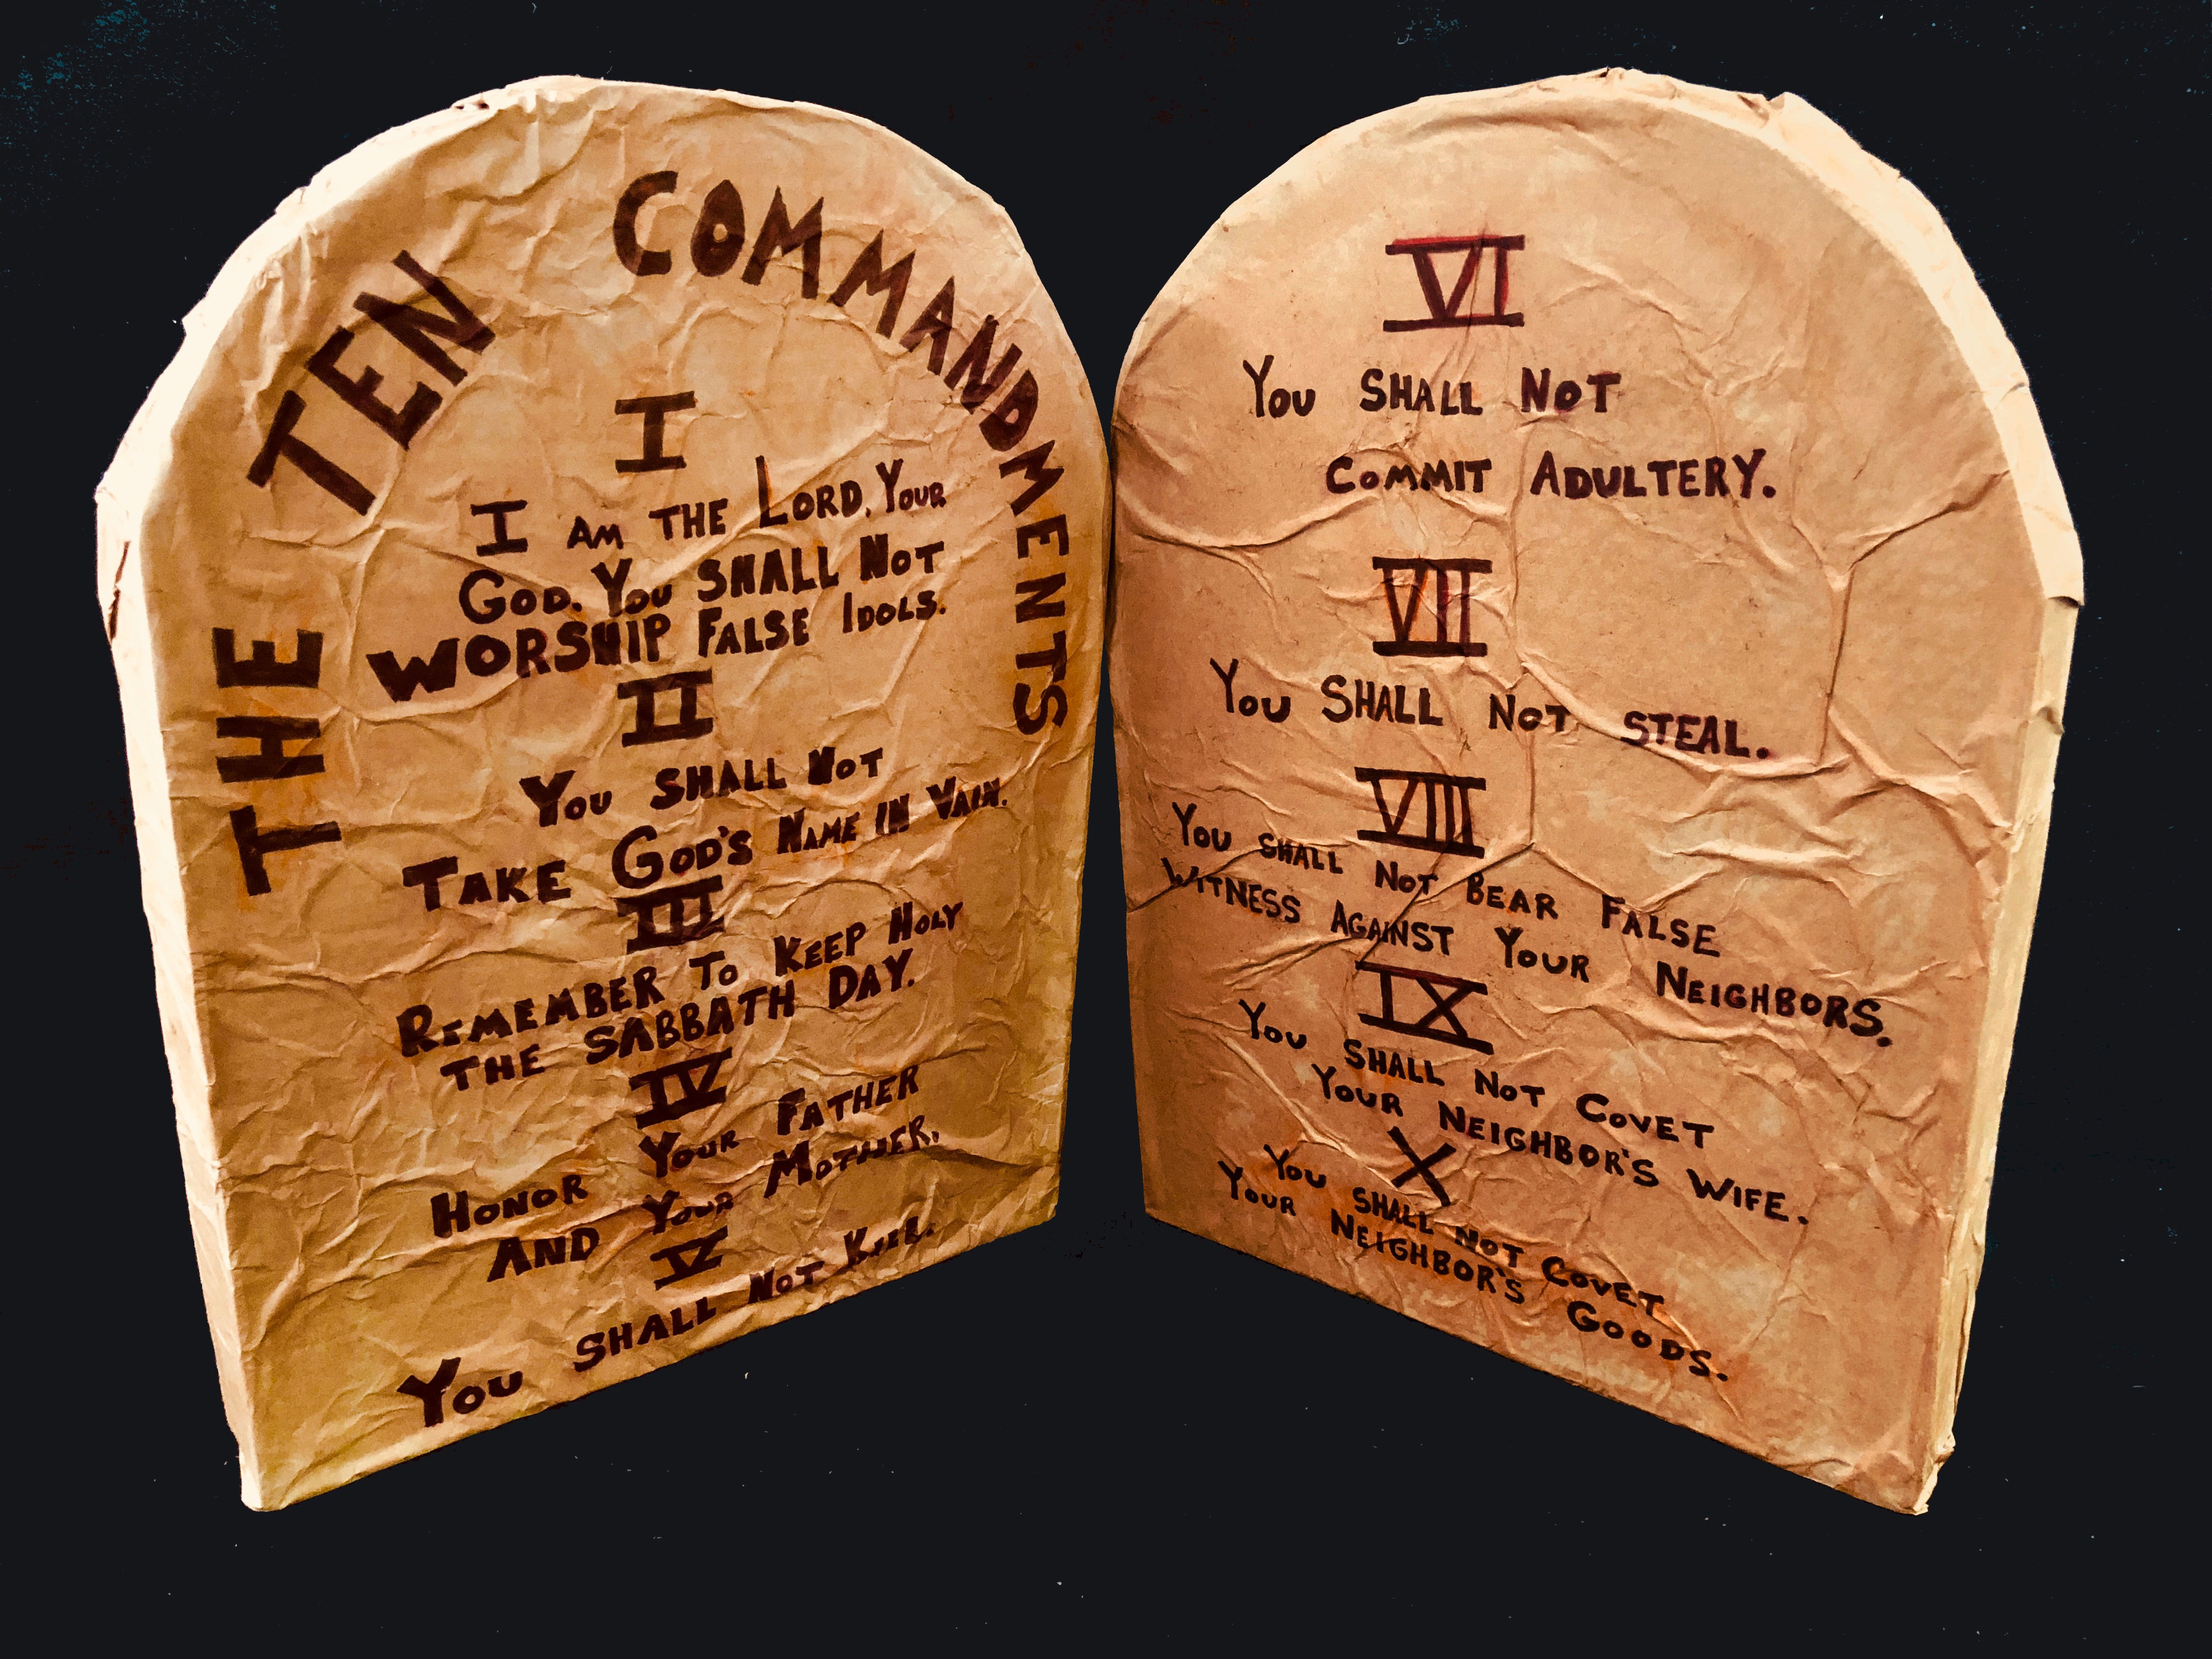 THE TEN COMMANDMENTS
I
I AM THE LORD, YOUR
GOD. YOU SHALL NOT
WORSHIP FALSE IDOLS.
II
YOU SHALL NOT
TAKE GOD'S NAME IN VAIN.
III
REMEMBER TO KEEP HOLY
THE SABBATH DAY.
IV
HONOR YOUR FATHER
AND YOUR MOTHER.
V
YOU SHALL NOT KILL.
VI
YOU SHALL NOT
COMMIT ADULTERY.
VII
YOU SHALL NOT STEAL.
VIII
YOU SHALL NOT BEAR FALSE
WITNESS AGAINST YOUR NEIGHBORS.
IX
YOU SHALL NOT COVET
YOUR NEIGHBOR'S WIFE.
X
YOU SHALL NOT COVET
YOUR NEIGHBOR'S GOODS.